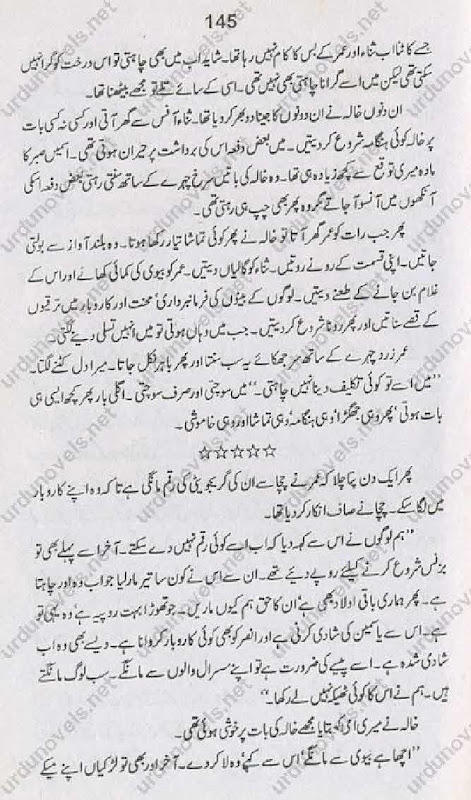 145
جسے کاٹنا اب ثناء اور عمر کے بس کا کام نہیں رہا تھا۔ شاید اب میں بھی چاہتی تو اس درخت کو گرا نہیں
سکتی تھی لیکن میں اسے گرانا چاہتی بھی نہیں تھی۔ اسی کے سائے تلے تو مجھے بیٹھنا تھا۔
ان دنوں خالہ نے ان دونوں کا جینا دوبھر کر دیا تھا۔ ثناء آفس سے گھر آتی اور کسی نہ کسی بات
پر خالہ کوئی ہنگامہ شروع کر دیتیں۔ میں بعض دفعہ اس کی برداشت پر حیران ہوتی تھی۔ اسمیں صبر کا
مادہ میری توقع سے کچھ زیادہ ہی تھا۔ وہ خالہ کی باتیں سرخ چہرے کے ساتھ سنتی رہتی بعض دفعہ اسکی
آنکھوں میں آنسو آ جاتے مگر وہ پھر بھی چپ ہی رہتی تھی۔
پھر جب رات کو عمر گھر آتا تو خالہ نے پھر کوئی تماشا تیار رکھا ہوتا۔ وہ بلند آواز سے بولتی
جاتیں۔ اپنی قسمت کے رونے روتیں۔ ثناء کو گالیاں دیتیں۔ عمر کو بیوی کی کمائی کھانے اور اس کے
غلام بن جانے کے طعنے دیتیں۔ لوگوں کے بیٹوں کی فرمانبرداری‘ محنت اور کاروبار میں ترقیوں
کے قصے سناتیں اور پھر رونا شروع کر دیتیں۔ جب میں وہاں ہوتی تو میں انہیں تسلی دینے لگتی۔
عمر زرد چہرے کے ساتھ سر جھکائے یہ سب سنتا اور پھر باہر نکل جاتا۔ میرا دل کٹنے لگتا۔
”میں اسے تو کوئی تکلیف دینا نہیں چاہتی۔“ میں سوچتی اور صرف سوچتی۔ اگلی بار پھر کچھ ایسی ہی
بات ہوتی‘ پھر وہی جھگڑا‘ وہی ہنگامہ‘ وہی تماشا اور وہی خاموشی۔
☆☆☆☆☆
پھر ایک دن پتا چلا کہ عمر نے چچا سے ان کی گریجویٹی کی رقم مانگی ہے تا کہ وہ اپنے کاروبار
میں لگا سکے۔ چچا نے صاف انکار کر دیا تھا۔
”ہم لوگوں نے اس سے کہہ دیا کہ اب اسے کوئی رقم نہیں دے سکتے۔ آخر اسے پہلے بھی تو
بزنس شروع کرنے کیلئے روپے دیئے تھے۔ ان سے اس نے کون سا تیر مار لیا جو اب وہ اور چاہتا
ہے۔ پھر ہماری باقی اولاد بھی ہے‘ ان کا حق ہم کیوں ماریں۔ جو تھوڑا بہت روپیہ ہے‘ وہ یہی تو
ہے۔ اس سے یاسمین کی شادی کرنی ہے اور انصر کو بھی کوئی کاروبار کروانا ہے۔ ویسے بھی وہ اب
شادی شدہ ہے۔ اسے پیسے کی ضرورت ہے تو اپنے سسرال والوں سے مانگے۔ سب لوگ مانگتے
ہیں۔ ہم نے اس کا کوئی ٹھیکہ نہیں لے رکھا۔“
خالہ نے میری امی کو بتایا مجھے خالہ کی بات پر خوشی ہوئی تھی۔
”اچھا ہے بیوی سے مانگے‘ اس سے کہے‘ وہ لا کر دے۔ آخر اور بھی تو لڑکیاں اپنے میکے
urdunovels.net